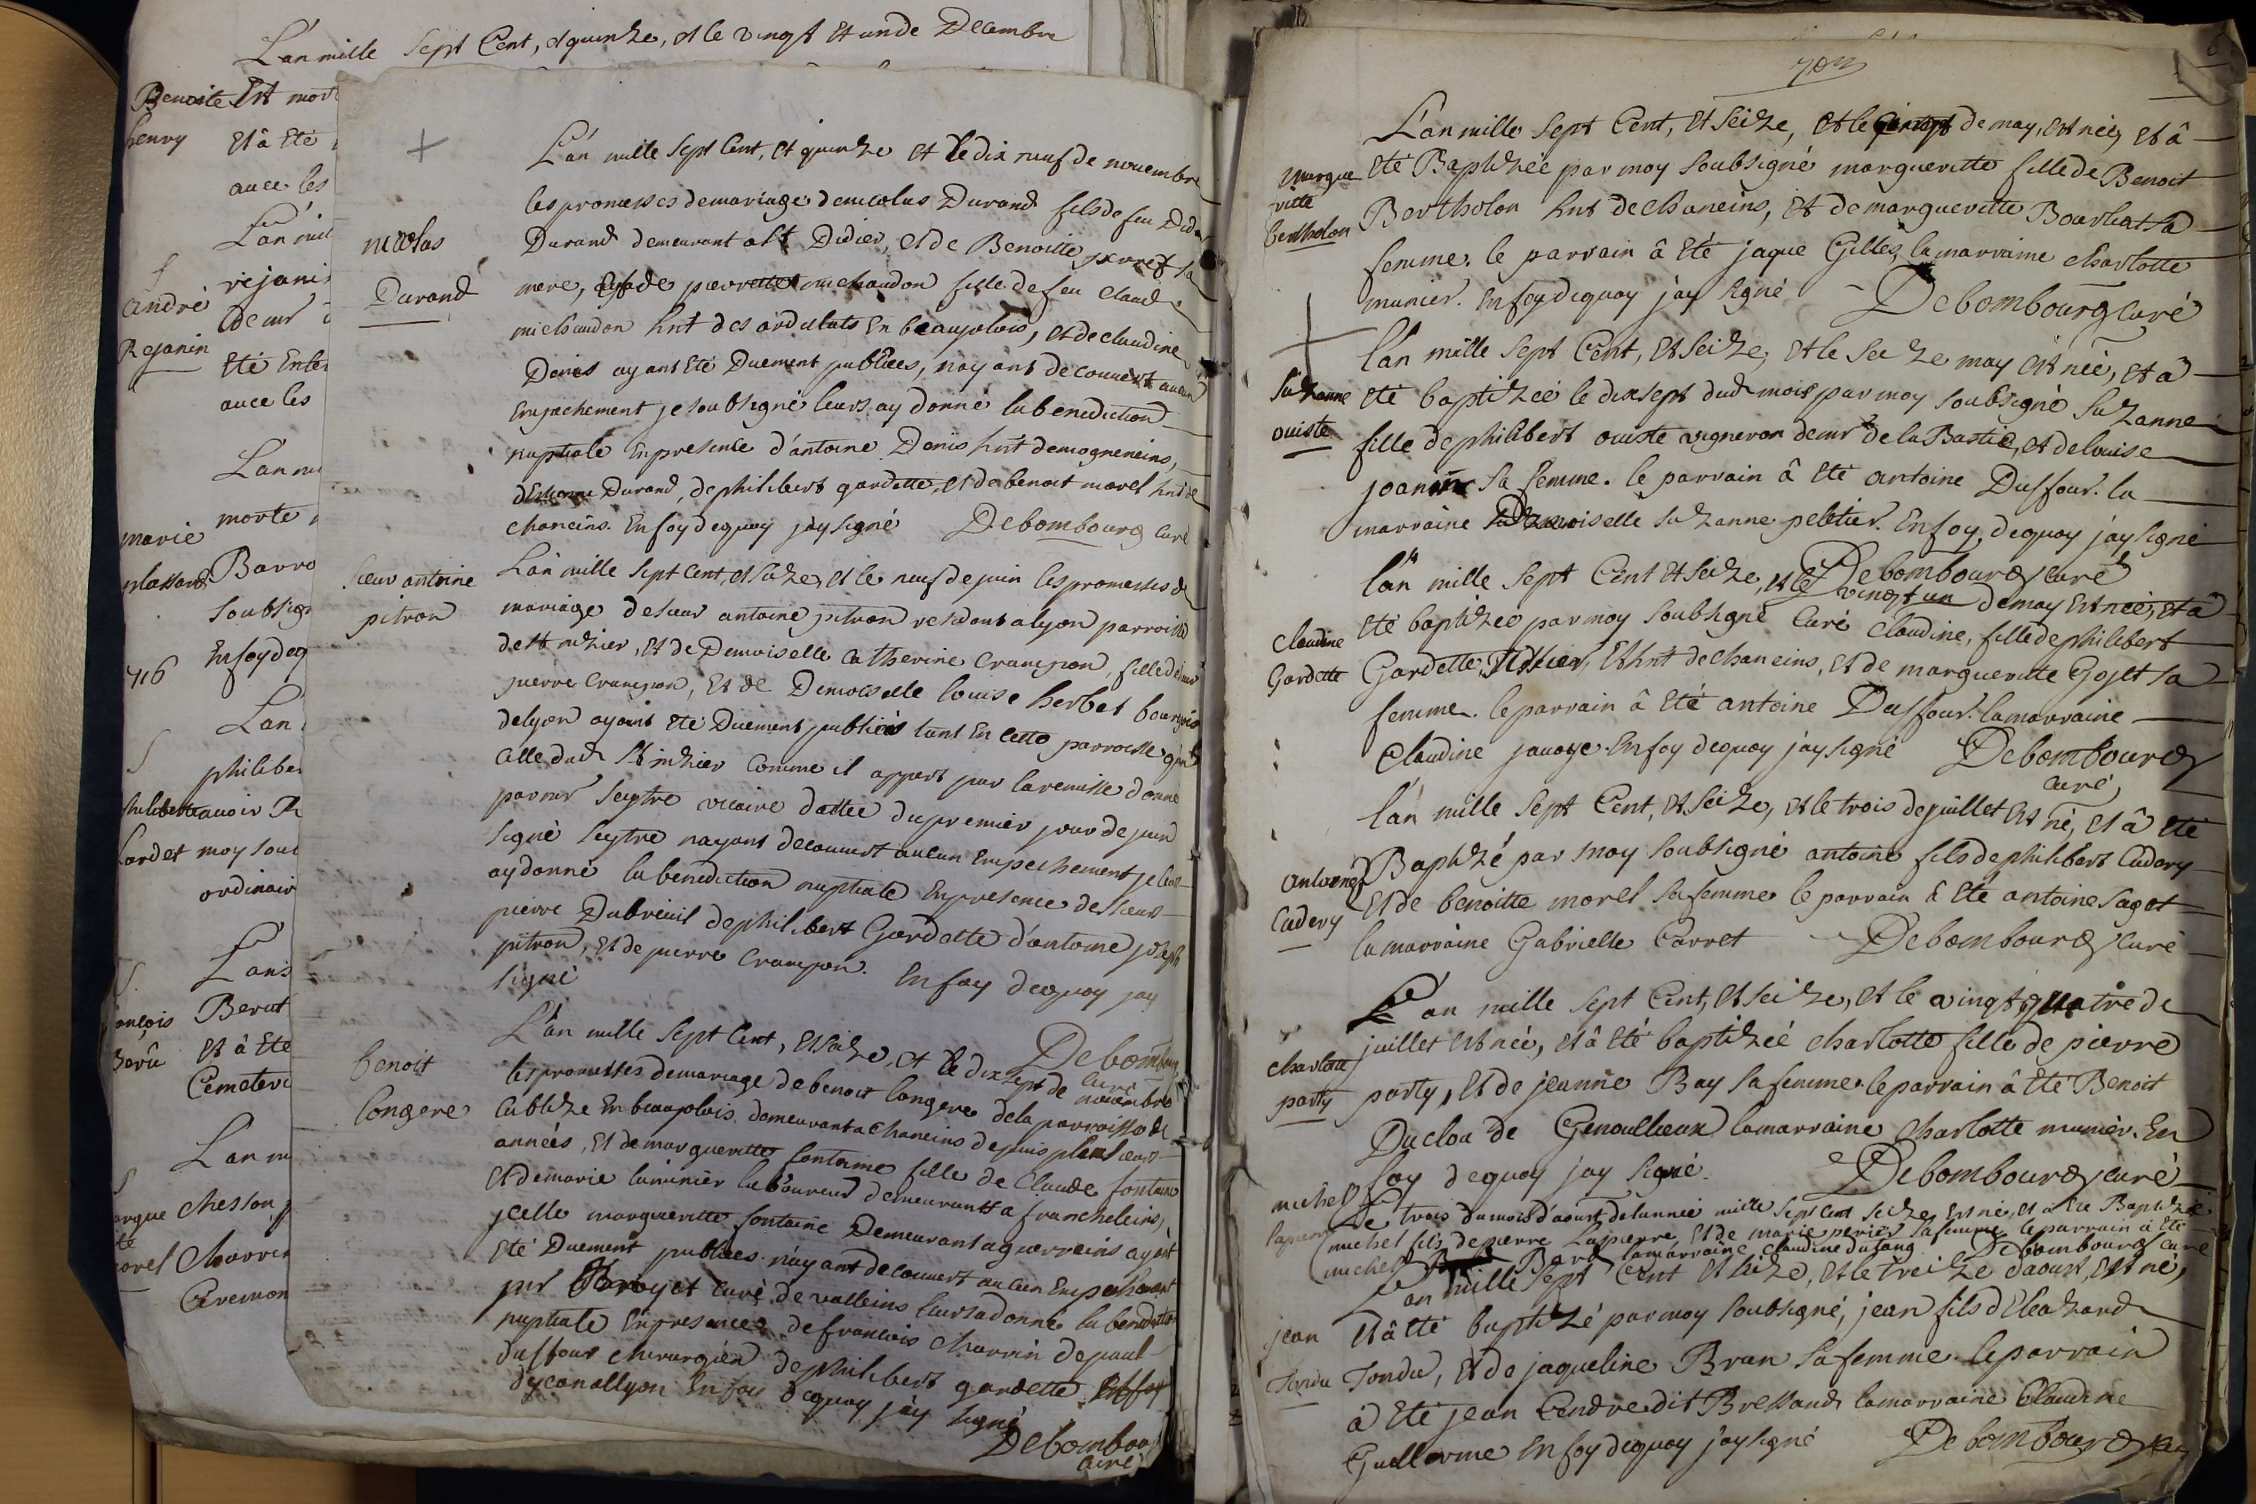 L'an mille sept Cent, et quinze, et le vingt et un de Decembre
Benoite Est mort
henry Et â Eté
avec les
L'an mil
André rejanin
Rejanin
Eté Enter
avec les
L'an mil
morte
marie
Barro
soubsign
Enfoy deq
716
L'an
philiber
moy sou
ordinair
L'an
Berut
Et â Eté
Cemeter
L'an mi
chesson
Charrin
Ceremon
L'an mille sept Cent, et quinze et le dix neuf de novembre
les promesses de mariage de nicolas Durand fils de feu Didier
nicolas
Durand
Durand demeurant a St Didier, et de Benoitte perret sa
mere, et de pierrette michaudon fille de feu Claude
michaudon hnt des ardilats En beaujolois, et de claudine
Denis ayant Eté Duement publiées, n'ayant decouvert aucun
Empechement je soubsigné leurs ay donné la benediction
nuptiale En presence d'antoine Denis hnt de mogneneins,
d'Etienne Durand, de philibert gardette, et de benoit morel hnt de
chaneins. En foy dequoy j'ay signé Debombourg curé
sieur antoine
pitron
L'an mille sept Cent, et seize, et le neuf de juin les promesses de
mariage de sieur antoine pitron residant a lyon parroisse
de St nizier, et de Demoiselle Catherine Crampon, fille de sieur
pierre Crampon, et de Demoiselle louise herbet bourgeois
de lyon ayant eté Duement publiées tant En cette parroisse qu'en
celle dud St nizier comme il appert par la remisse donné
par mr seytre vicaire dattée du premier jour de juin
signé seytre n'ayant decouvert aucun Empechement je leur
ay donné la benediction nuptiale En presence de sieur
pierre Dubreuil de philibert Gardette d'antoine joseph
pitron, et de pierre Crampon. En foy dequoy jay
signé
Debombourg
curé
benoit
longere
L'an mille sept Cent, et seize, et le dix sept de novembre
les promesses de mariage de benoit longere de la parroisse de
la blize En beaujolois demeurant a Chaneins depuis plusieurs
années, et de margueritte fontaine fille de Claude fontaine
et de marie luminier laboureur demeurant a francheleins,
jcelle margueritte fontaine Demeurant a guerreins ayant
eté Duement publiées. n'ayant decouvert aucun Empechement
mr curé de valleins leurs a donné la benediction
nuptiale En presence de francois Charrin de paul
duffour chirurgien de philibert gardette
En foy dequoy jay signé
Debombourg
curé
L'an mille sept Cent, et seize, et le de may, est née, et â
Eté Baptizée par moy soubsigné margueritte fille de Benoit
margue
ritte
bertholon
Bertholon hnt de chaneins, et de margueritte Bourliat sa
femme. le parrain â Eté jaque Gilles, la marraine charlotte
munier. En foy dequoy j'ay signé Debombourg curé
L'an mille sept Cent, et seize, et le seize may est née, et â
suzanne
ouiste
Eté baptizée le dixsept dud mois par moy soubsigné suzanne
fille de philibert ouiste vigneron demt de la Bastie, et de louise
joannin sa femme. le parrain â Eté antoine Duffour. la
marraine Demoiselle suzanne peletier. En foy dequoy j'ay signé
Debombourg curé
L'an mille sept Cent et seize, et le vingt un de may Est née, et â
claudine
gardette
Eté baptizée par moy soubsigné curé Claudine, fille de philibert
Gardette, Tissier, et hnt de chaneins, et de margueritte Gojet sa
femme. le parrain â Eté antoine Duffour. la marraine
Claudine javoye. En foy dequoy j'ay signé Debombourg
curé
L'an mille sept Cent, et seize, et le trois de juillet est né, et â eté
antoine
Cadery
Baptizé par moy soubsigné antoine fils de philibert Cadery
et de benoitte morel sa femme le parrain â Eté antoine sagot
la marraine Gabrielle Carret Debombourg curé
L'an mille sept Cent, et seize, et le vingt quatre de
juillet est née, et â été baptizée charlotte fille de pierre
charlotte
party
party, et de jeanne Bay sa femme. le parrain â Eté Benoit
Ducloa de Genouilleux la marraine Charlotte munier. En
foy dequoy j'ay signé. Debombourg curé
michel
lapierre
Le trois du mois d'aoust de l'année mille sept cent seize est né, et a Eté Baptizé
michel fils de pierre Lapierre et de marie perier sa femme le parrain â Eté
michel Bard la marraine Claudine dusang Debombourg curé
L'an mille sept Cent et seize, et le treize d'aoust, est né,
jean
Tondu
et â eté baptizé par moy soubsigné, jean fils d'Eleazard
Tondu, et de jaqueline Bran sa femme. le parrain
â Eté jean Cendre dit Bressand la marraine Claudine
Guillerme En foy dequoy j'ay signé Debombourg curé